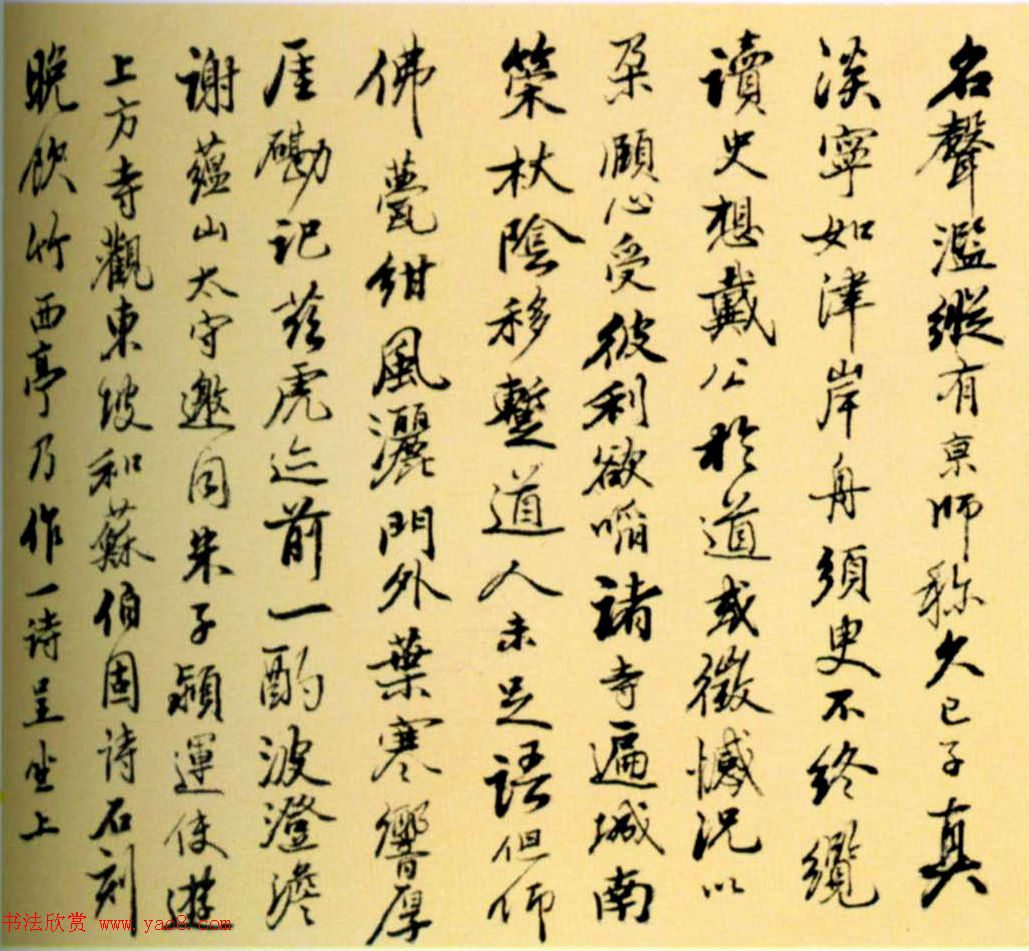 名聲濫縱有京師称久已子真
淡寧如津岸舟須臾不終纜
讀史想戴公於道或徵憾況以
朵頤心受彼利欲啗諸寺遍城南
策杖陰移蹔道人未足語但仰
佛甍紺風灑門外葉寒響厚
厓磡記茲虎迹前一酌波澄澹
謝蘊山太守邀同朱子潁運使遊
上方寺觀東坡和蘇伯固詩石刻
晚飲竹西亭乃作一詩呈坐上
书法欣赏 www.yac8.com